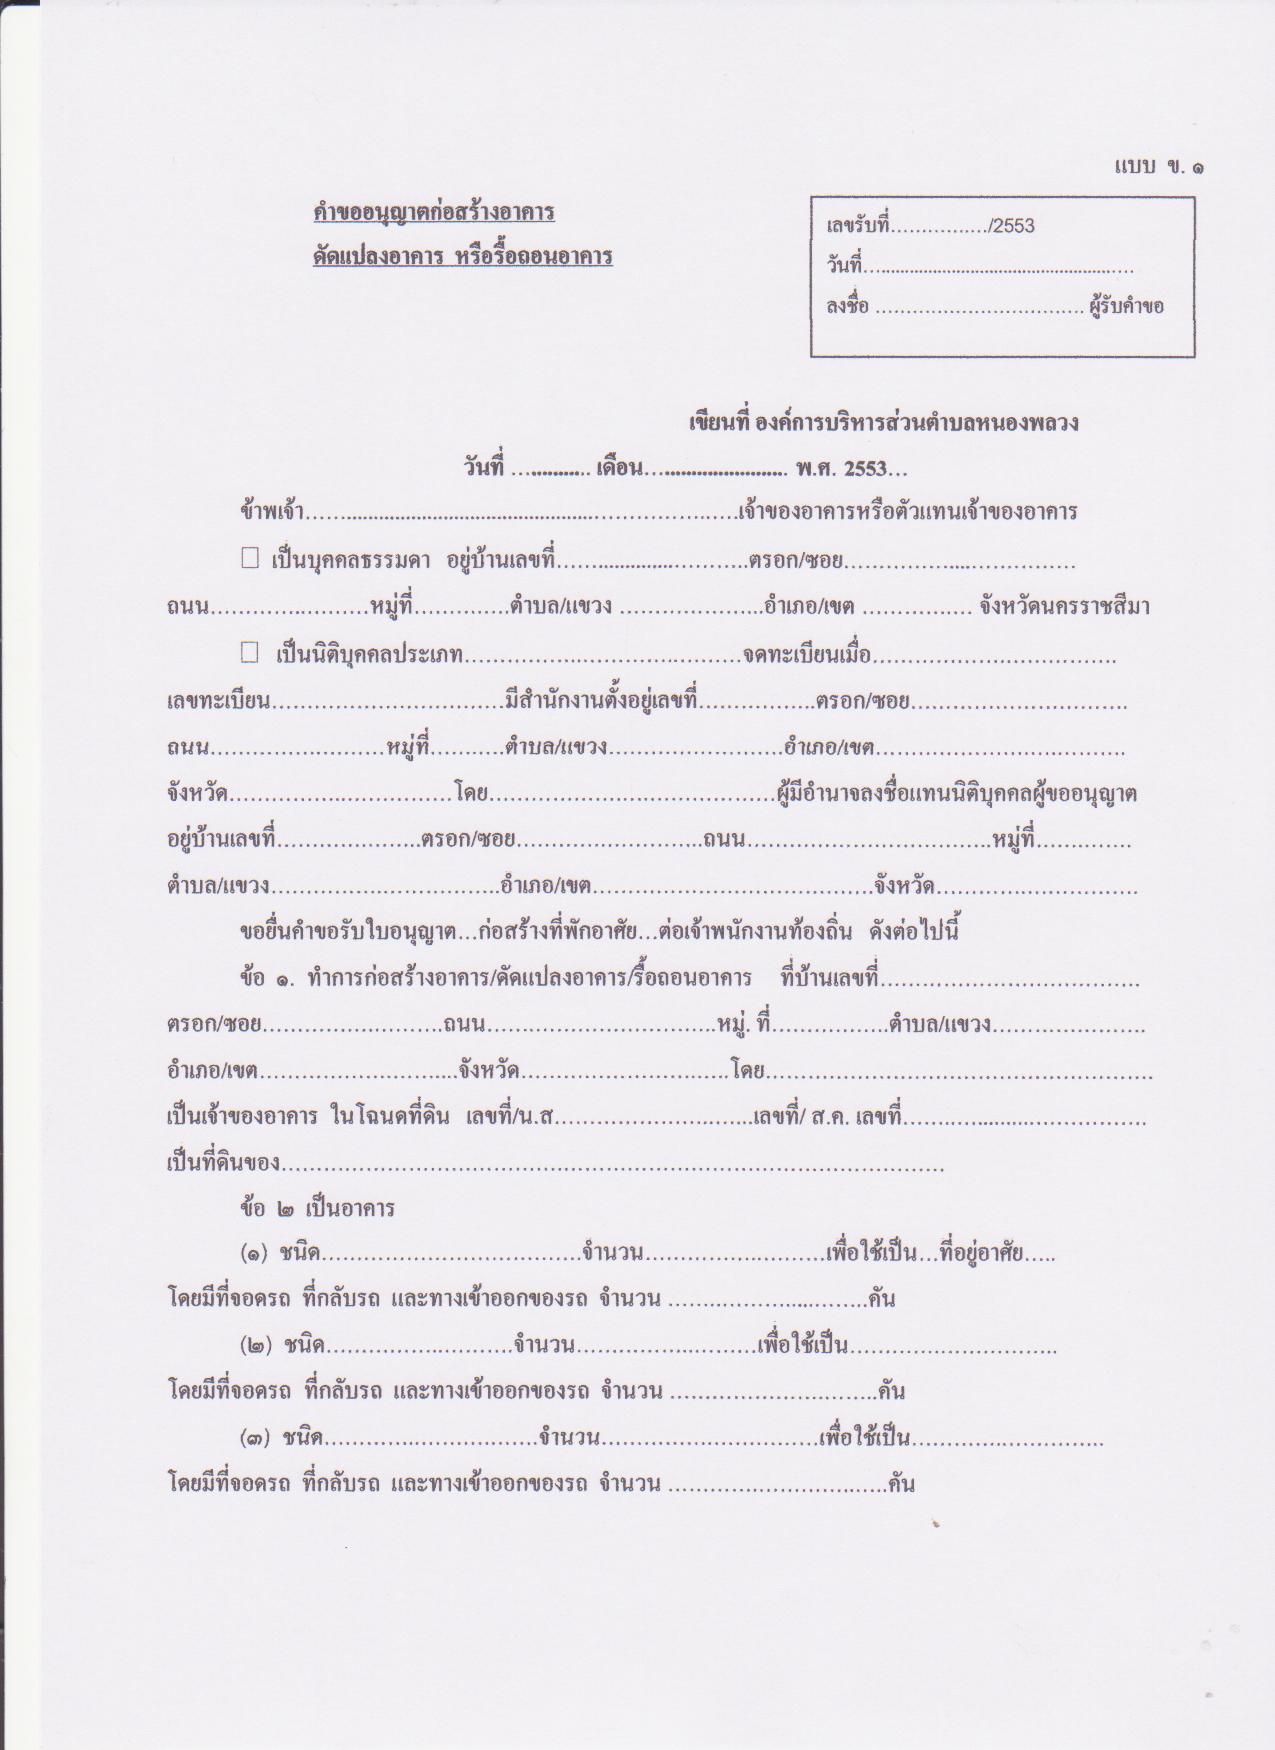 แบบ ข. ๑
คำขออนุญาตก่อสร้างอาคาร
ดัดแปลงอาคาร หรือรื้อถอนอาคาร
เลขรับที่................/2553
วันที่................................................
ลงชื่อ .................................. ผู้รับคำขอ
เขียนที่ องค์การบริหารส่วนตำบลหนองพลวง
วันที่ .............. เดือน............................ พ.ศ. 2553...
ข้าพเจ้า.......................................................................เจ้าของอาคารหรือตัวแทนเจ้าของอาคาร
□ เป็นบุคคลธรรมดา อยู่บ้านเลขที่................................ตรอก/ซอย......................................
ถนน.......................หมู่ที่..............ตำบล/แขวง .....................อำเภอ/เขต ................ จังหวัดนครราชสีมา
□ เป็นนิติบุคคลประเภท........................................จดทะเบียนเมื่อ...................................
เลขทะเบียน..................................มีสำนักงานตั้งอยู่เลขที่.................ตรอก/ซอย...............................
ถนน.........................หมู่ที่...........ตำบล/แขวง.........................อำเภอ/เขต....................................
จังหวัด................................โดย.........................................ผู้มีอำนาจลงชื่อแทนนิติบุคคลผู้ขออนุญาต
อยู่บ้านเลขที่.....................ตรอก/ซอย...........................ถนน...................................หมู่ที่..............
ตำบล/แขวง.................................อำเภอ/เขต........................................จังหวัด.............................
ขอยื่นคำขอรับใบอนุญาต...ก่อสร้างที่พักอาศัย...ต่อเจ้าพนักงานท้องถิ่น ดังต่อไปนี้
ข้อ ๑. ทำการก่อสร้างอาคาร/ดัดแปลงอาคาร/รื้อถอนอาคาร ที่บ้านเลขที่.....................................
ตรอก/ซอย..........................ถนน.................................หมู่. ที่.................ตำบล/แขวง......................
อำเภอ/เขต............................จังหวัด..............................โดย........................................................
เป็นเจ้าของอาคาร ในโฉนดที่ดิน เลขที่/น.ส.............................เลขที่/ ส.ค. เลขที่...................................
เป็นที่ดินของ...............................................................................................
ข้อ ๒ เป็นอาคาร
(๑) ชนิด.....................................จำนวน..........................เพื่อใช้เป็น...ที่อยู่อาศัย.....
โดยมีที่จอดรถ ที่กลับรถ และทางเข้าออกของรถ จำนวน .............................คัน
(๒) ชนิด...........................จำนวน..........................เพื่อใช้เป็น..............................
โดยมีที่จอดรถ ที่กลับรถ และทางเข้าออกของรถ จำนวน ..............................คัน
(๓) ชนิด...............................จำนวน...............................เพื่อใช้เป็น............................
โดยมีที่จอดรถ ที่กลับรถ และทางเข้าออกของรถ จำนวน ................................คัน